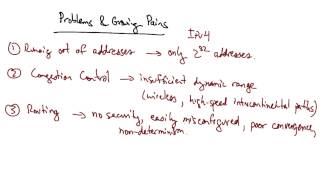 Problems & Growing Pains
IPv4
① Running out of addresses → only 2^32 addresses.
② Congestion Control → insufficient dynamic range
(wireless, high-speed intercontinental paths)
③ Routing → no security, easily misconfigured, poor convergence,
non-determinism.